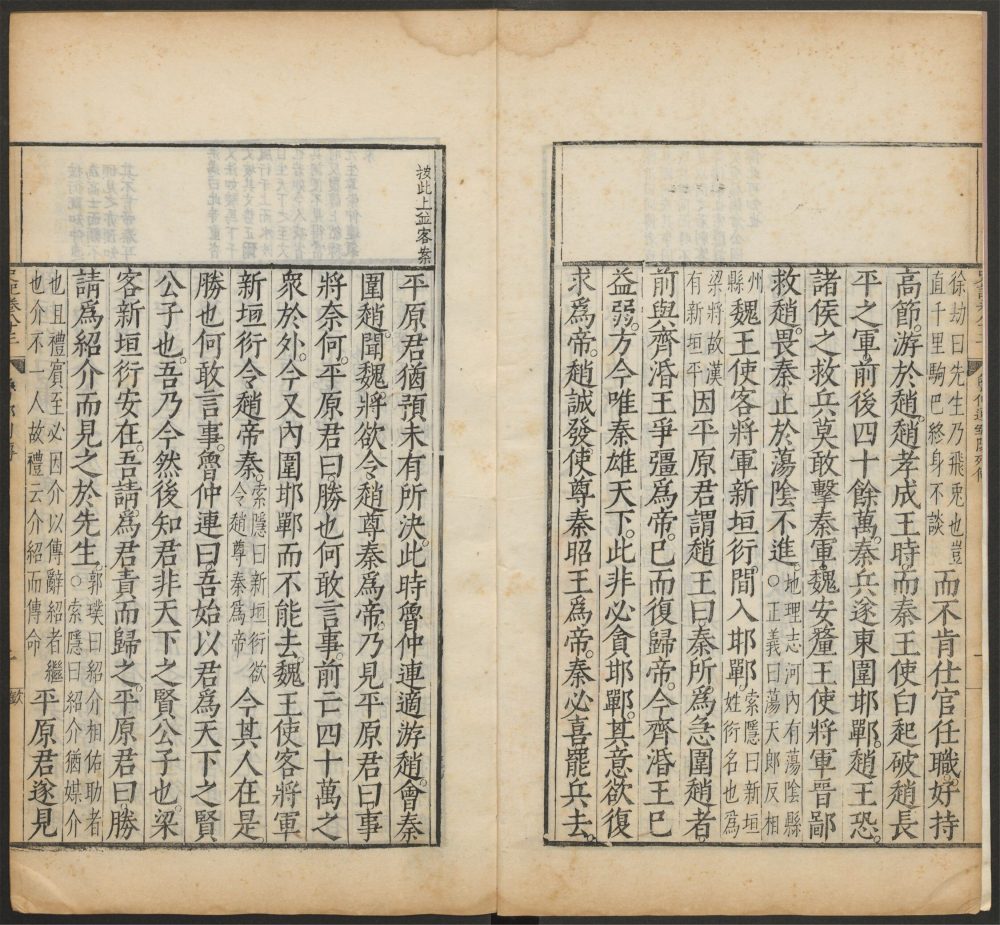 徐劫曰先生乃飛兎也豈
直千里駒巴終身不談
而不肯仕官任職好持
高節游於趙趙孝成王時而秦王使白起破趙長
平之軍前後四十餘萬秦兵遂東圍邯鄲趙王恐
諸侯之救兵莫敢擊秦軍魏安釐王使將軍晋鄙
救趙畏秦止於蕩陰不進
地理志河内有蕩陰縣
○正義曰蕩天郎反相
州
縣
魏王使客將軍新垣衍間入邯鄲
索隱曰新垣
姓衍名也爲
梁將故漢
有新垣平
因平原君謂趙王曰秦所爲急圍趙者
前與齊湣王爭彊爲帝已而復歸帝今齊湣王已
益弱方今唯秦雄天下此非必貪邯鄲其意欲復
求爲帝趙誠發使尊秦昭王爲帝秦必喜罷兵去
按此上並客案
平原君猶預未有所決此時魯仲連適游趙會秦
圍趙聞魏將欲令趙尊秦爲帝乃見平原君曰事
將奈何平原君曰勝也何敢言事前亡四十萬之
衆於外今又內圍邯鄲而不能去魏王使客將軍
新垣衍令趙帝秦
索隱曰新垣衍欲
令趙尊秦爲帝
今其人在是
勝也何敢言事魯仲連曰吾始以君爲天下之賢
公子也吾乃今然後知君非天下之賢公子也梁
客新垣衍安在吾請爲君責而歸之平原君曰勝
請爲紹介而見之於先生
郭璞曰紹介相佑助者
○索隱曰紹介猶媒介
也且禮賓至必因介以傳辭紹者繼
也介不一人故禮云介紹而傳命
平原君遂見